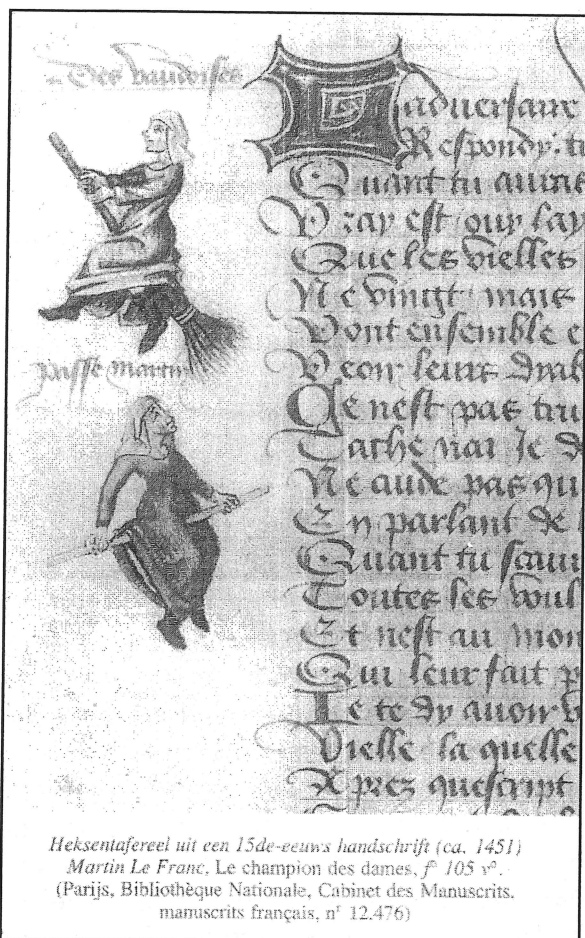 Des vaudoises
Respondy tu
Quant tu auras
Vray est ouy lay
Que les vielles
Ne vingt mais
Vont ensemble e
passe Martin
Veoir leurs dyab
Ce nest pas tru
Cache nai Je d
Ne cuide pas qu
En parlant de
Quant tu scaur
Toutes les voul
Et nest au mon
Qui leur fait p
Ie te dy auoir v
Vielle la quelle
Aprez quescript
Heksentafereel uit een 15de-eeuws handschrift (ca. 1451)
Martin Le Franc, Le champion des dames, f° 105 v°.
(Parijs, Bibliothèque Nationale, Cabinet des Manuscrits.
manuscrits français, nʳ 12.476)